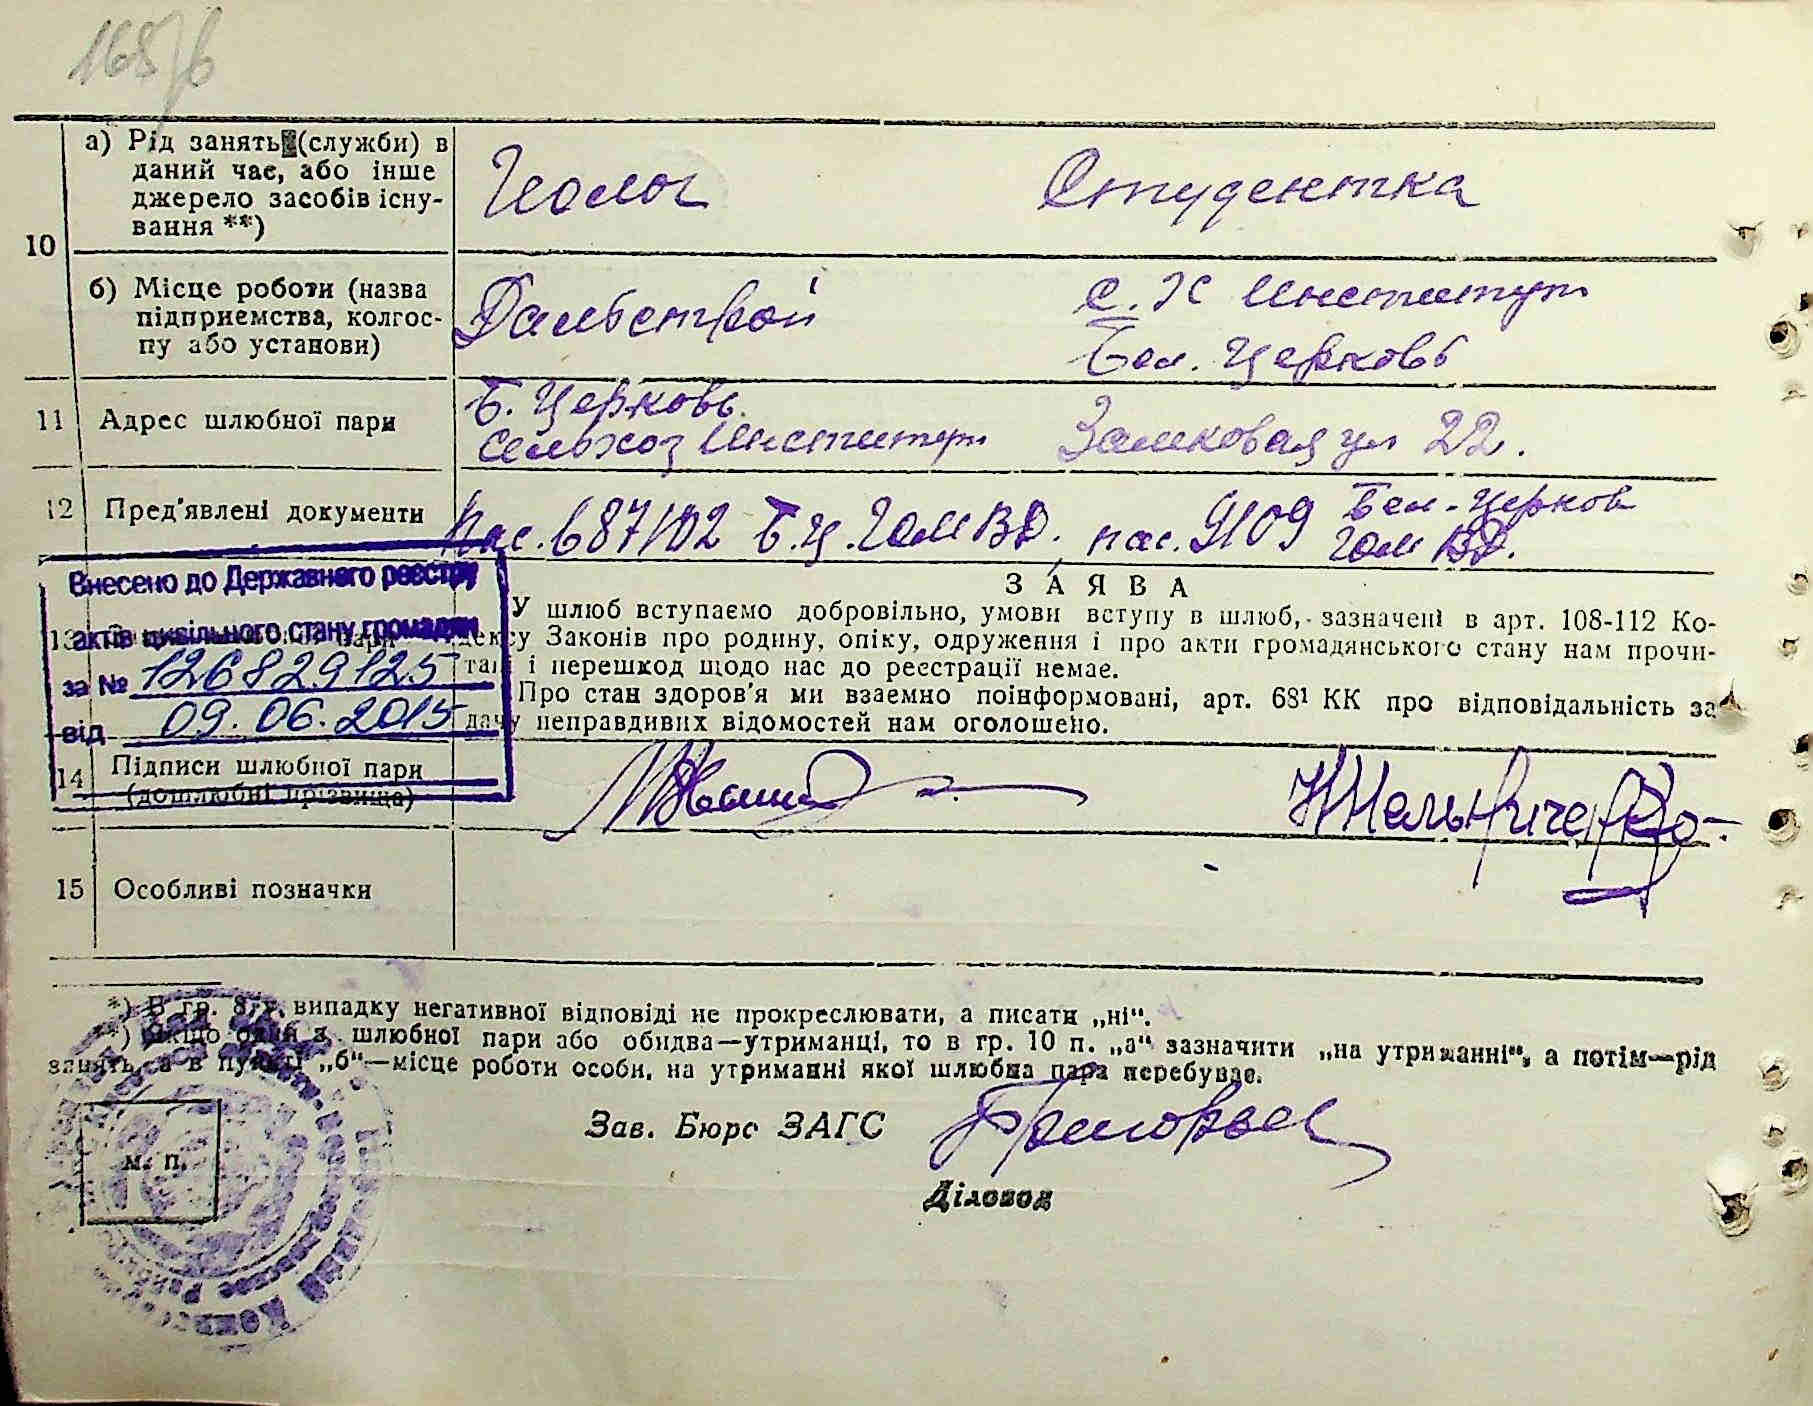 168/6
10
а) Рід занять (служби) в
даний час, або інше
джерело засобів існу-
вання **)
Геолог
Студентка
б) Місце роботи (назва
підприемства, колгос-
пу або установи)
Дальстрой
С. Х Институт
Бел. Церковь
11
Адрес шлюбної пари
Б. Церковь
Сельхоз Институт Замковая ул 22.
12
Пред'явлені документи
Пас. 687102 Б.Ц. ГОМВД. пас. 9109 Бел-Церков
ГОМ ВД.
Внесено до Державного реєстру
актів цивільного стану громадян
за № 126829125
від 09.06.2015
13
пари
ЗАЯВА
У шлюб вступаємо добровільно, умови вступу в шлюб, зазначені в арт. 108-112 Ко-
дексу Законів про родину, опіку, одруження і про акти громадянського стану нам прочи-
тані і перешкод щодо нас до реєстрації немає.
Про стан здоров'я ми взаємно поінформовані, арт. 68¹ КК про відповідальність за
дачу неправдивих відомостей нам оголошено.
14
Підписи шлюбної пари
(дошлюбні прізвища)
15
Особливі позначки
*) В гр. 8 у випадку негативної відповіді не прокреслювати, а писати „ні“.
) Якщо один з шлюбної пари або обидва—утриманці, то в гр. 10 п. „а“ зазначити „на утриманні“, а потім—рід
занять, а в пункті „б“—місце роботи особи, на утриманні якої шлюбна пара перебуває.
Зав. Бюро ЗАГС
м. п.
Діловод